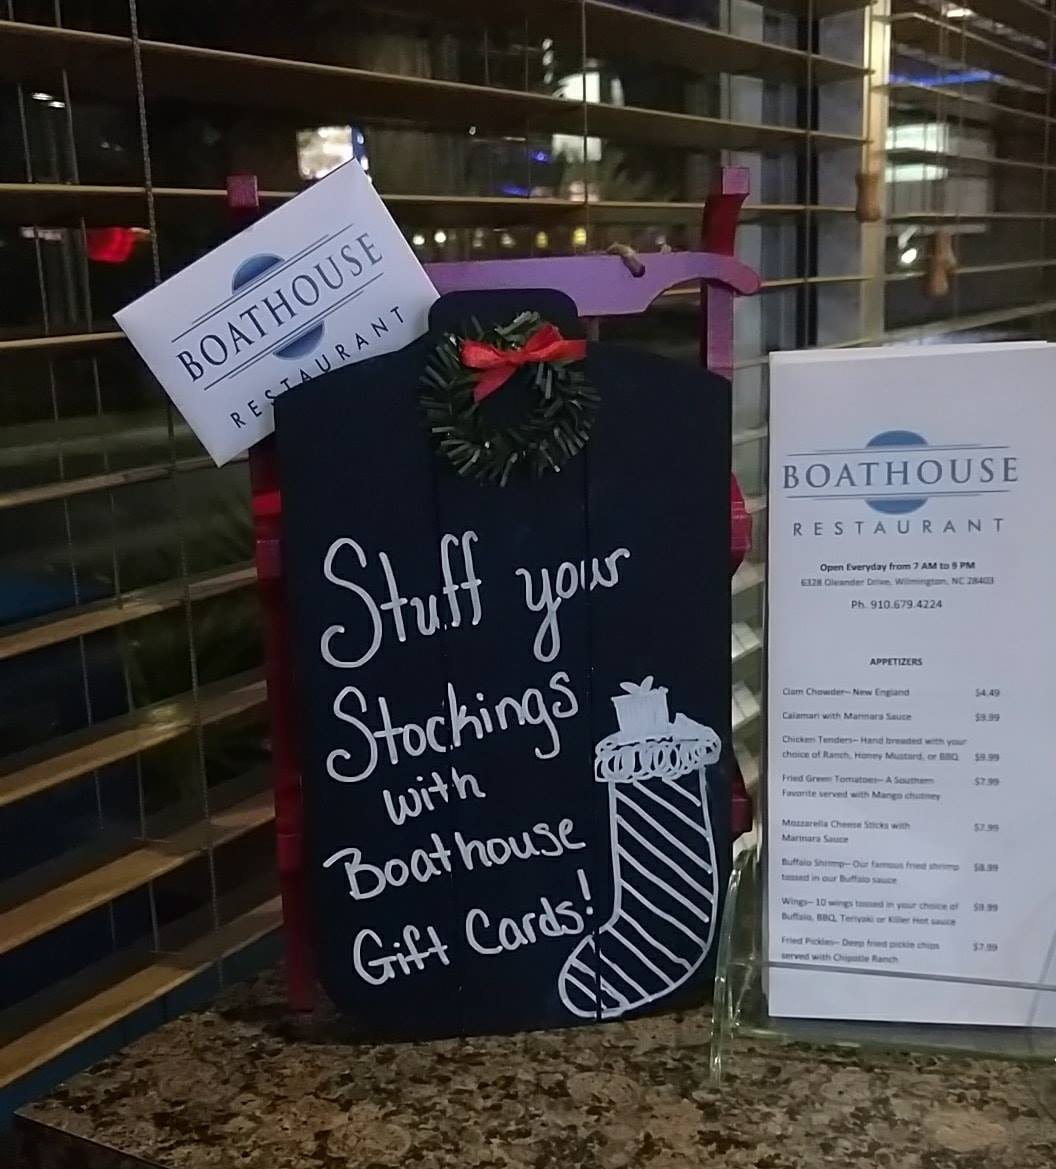 BOATHOUSE
RESTAURANT
Stuff your
Stockings
with
Boathouse
Gift Cards!
BOATHOUSE
RESTAURANT
Open Everyday from 7 AM to 9 PM
6328 Oleander Drive, Wilmington, NC 28403
Ph. 910.679.4224
APPETIZERS
Clam Chowder– New England $4.49
Calamari with Marinara Sauce $9.99
Chicken Tenders– Hand breaded with your
choice of Ranch, Honey Mustard, or BBQ $9.99
Fried Green Tomatoes– A Southern $7.99
Favorite served with Mango chutney
Mozzarella Cheese Sticks with $7.99
Marinara Sauce
Buffalo Shrimp– Our famous fried shrimp $8.99
tossed in our Buffalo sauce
Wings– 10 wings tossed in your choice of $9.99
Buffalo, BBQ, Teriyaki or Killer Hot sauce
Fried Pickles– Deep fried pickle chips $7.99
served with Chipotle Ranch